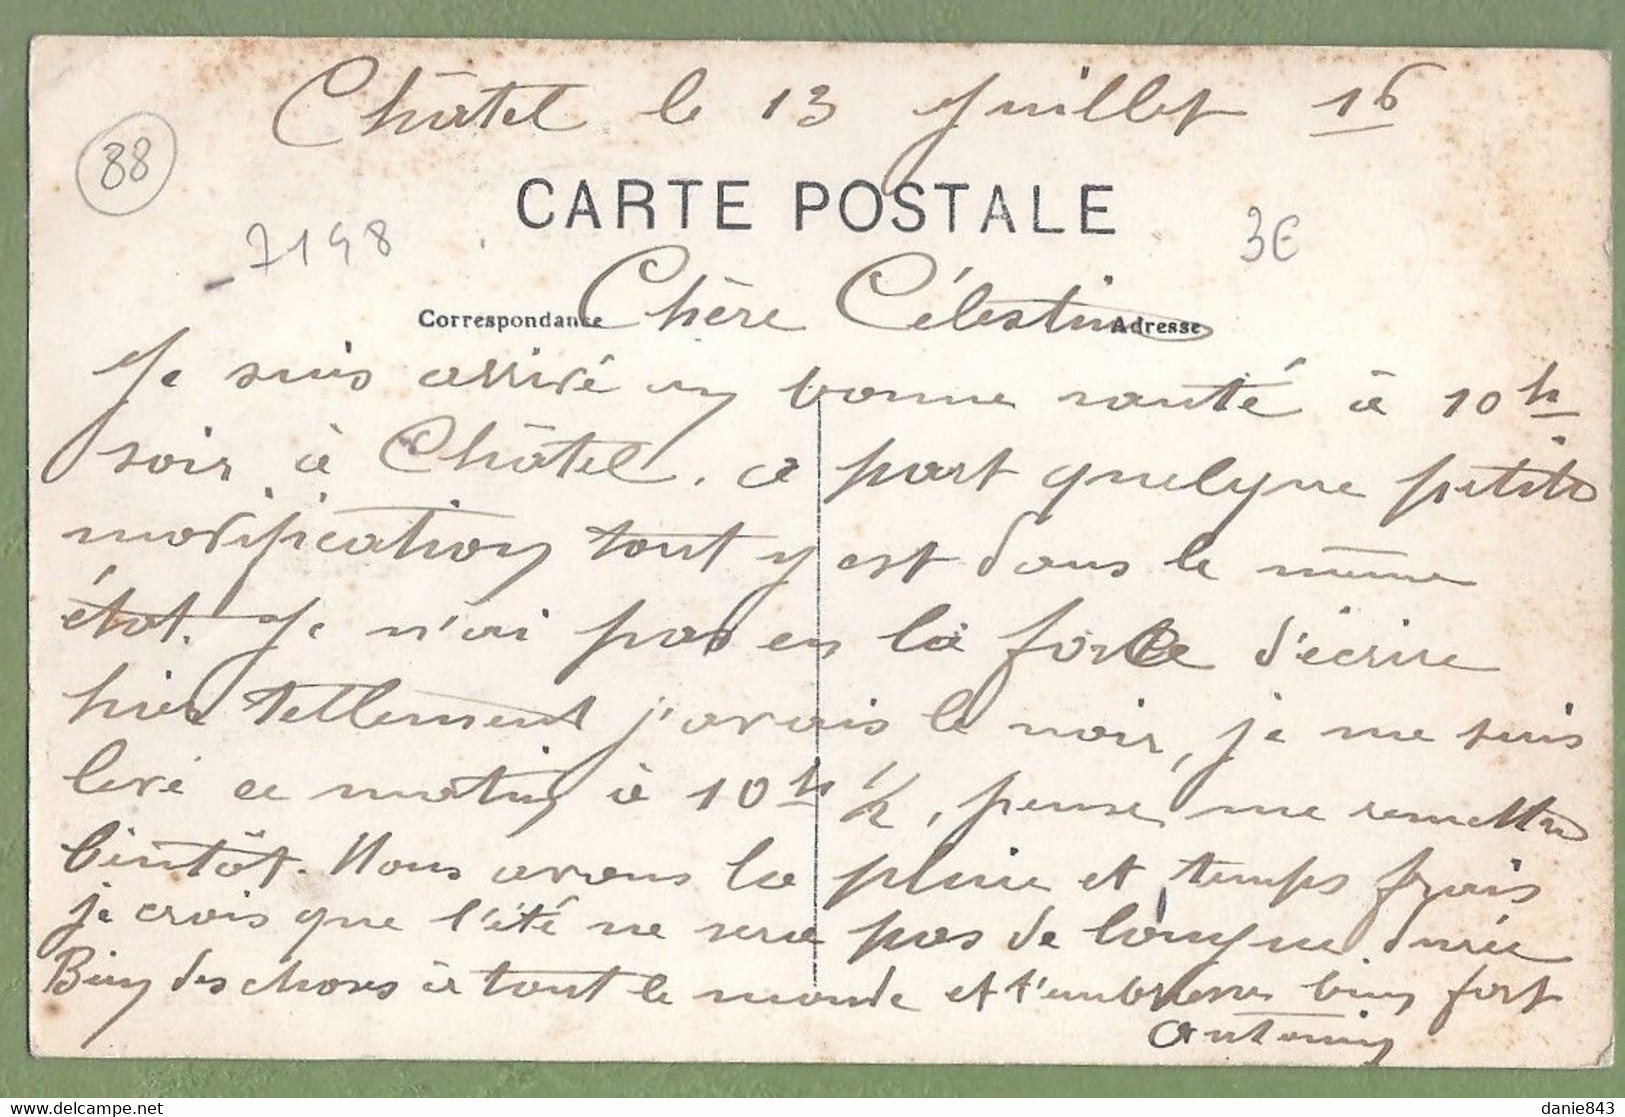 Châtel le 13 Juillet 16
88
CARTE POSTALE
7198
3€
Correspondance
Adresse
Chère Célestine
Je suis arrivé en bonne santé à 10h
soir à Châtel. à part quelque petite
modification tout y est dans le même
état. Je n'ai pas eu la force d'écrire
hier tellement j'avais le noir, je me suis
levé ce matin à 10h 1/2, pense me remettre
bientôt. Nous avons la pluie et temps frais
je crois que l'été ne sera pas de longue durée
Bien des choses à tout le monde et t'embrasse bien fort
Antonin
danie843